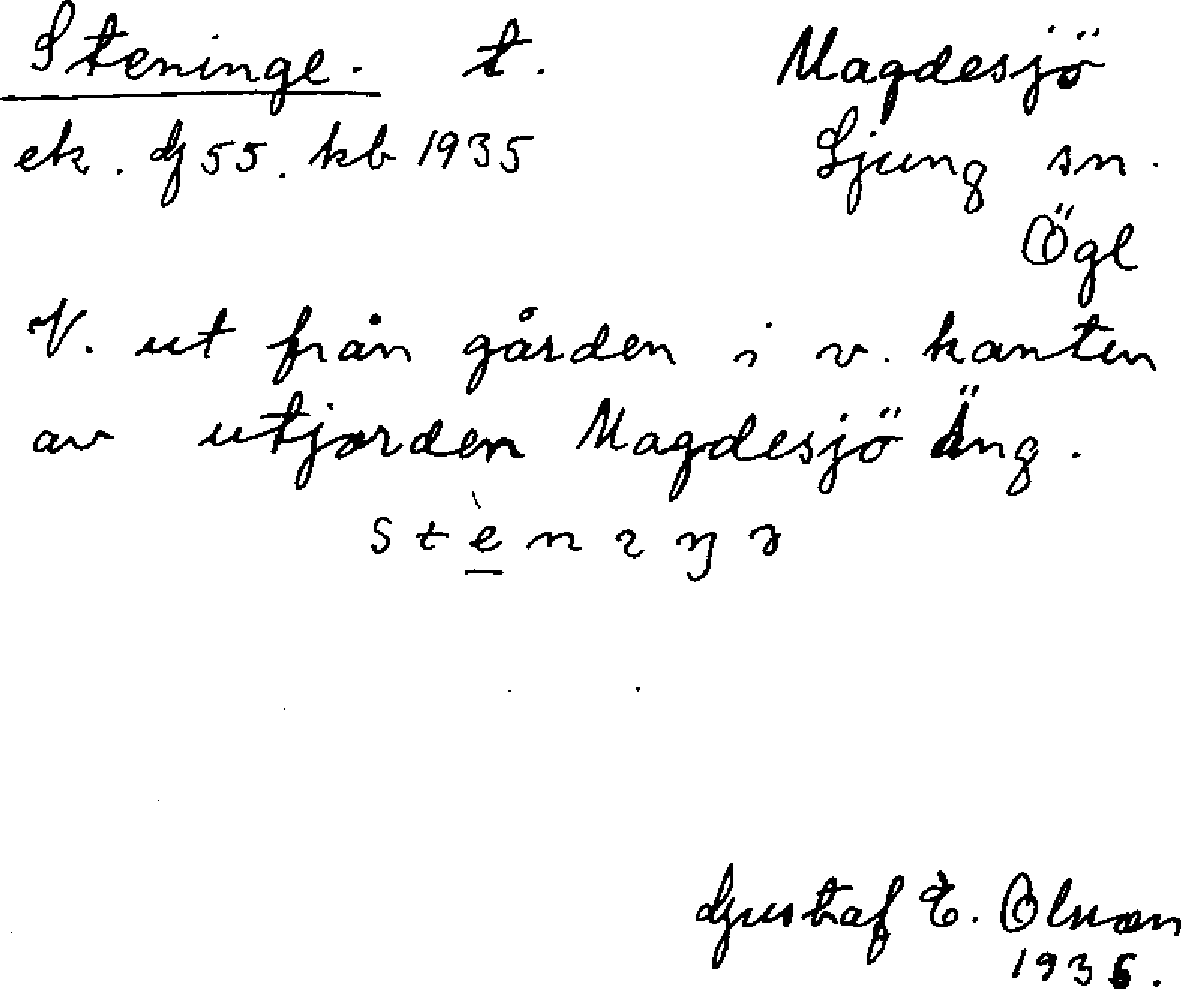 Steninge. t. Magdesjö
ek. G 55. kb 1935 Ljung sn.
Ögl
V. ut från gården i v. kanten
av utjorden Magdesjö Äng.
stènıŋə
Gustaf E. Olsson
1935.